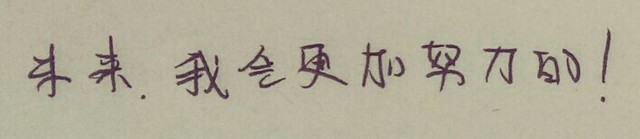 未来.我会更加努力的!